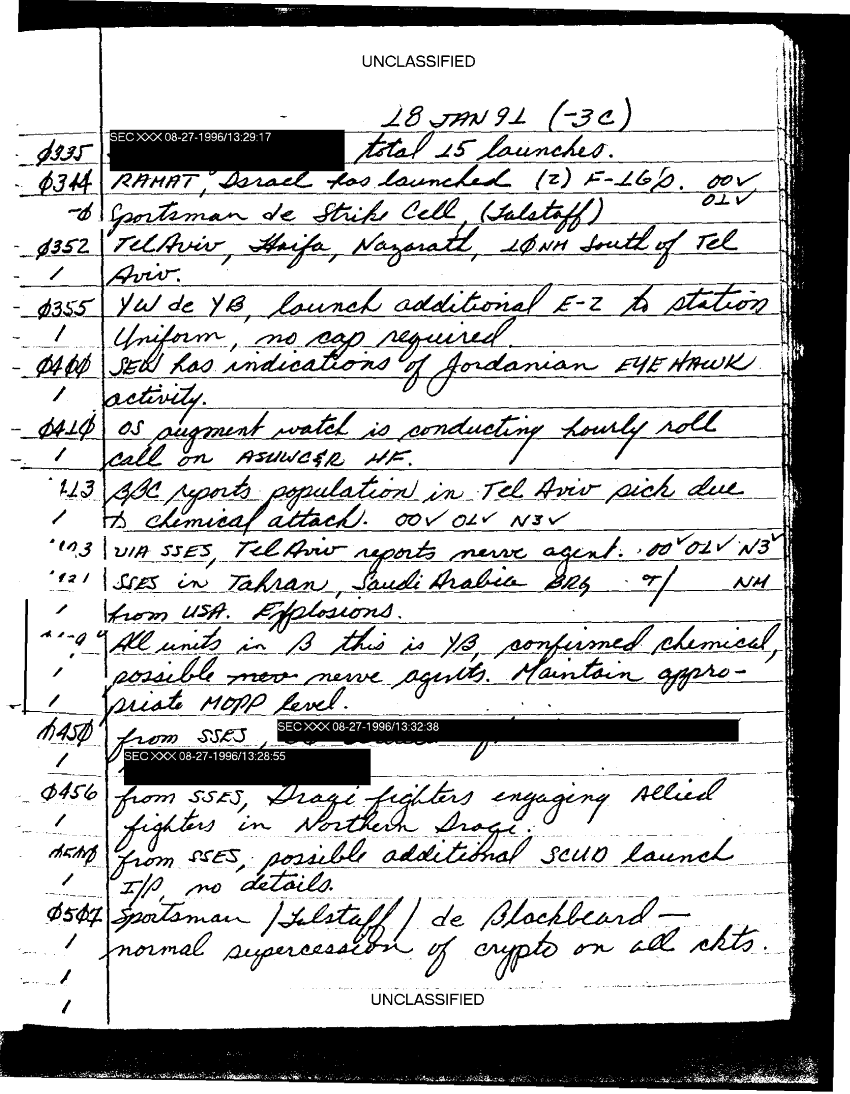 UNCLASSIFIED
18 JAN 91 (-3C)
SEC XXX 08-27-1996/13:29:17
Ø335 total 15 launches.
Ø344 RAMAT, Israel has launched (2) F-16's. 00✓
01✓
Sportsman de Strike Cell, (Falstaff)
Ø352 Tel Aviv, Haifa, Nazarath, 1Ø NM South of Tel
/ Aviv.
Ø355 YW de YB, launch additional E-2 to station
/ Uniform, no cap required.
Ø4ØØ SEW has indications of Jordanian EYE HAWK
/ activity.
Ø41Ø OS augment watch is conducting hourly roll
/ call on ASUWC&R HF.
BBC reports population in Tel Aviv sick due
/ to chemical attack. 00✓ 01✓ N3✓
VIA SSES, Tel Aviv reports nerve agent. 00✓ 01✓ N3✓
SSES in Tahran, Saudi Arabia BRG NM
/ from USA. Explosions.
All units in B this is YB, confirmed chemical,
/ possible nerve agents. Maintain appro-
/ priate MOPP level.
Ø45Ø from SSES, SEC XXX 08-27-1996/13:32:38
/ SEC XXX 08-27-1996/13:28:55
Ø456 from SSES, Iraqi fighters engaging Allied
/ fighters in Northern Iraqi.
from SSES, possible additional SCUD launch
/ I/P, no details.
Ø5Ø7 Sportsman (Falstaff) de Blackbeard —
/ normal supercession of crypto on all ckts.
/
/ UNCLASSIFIED